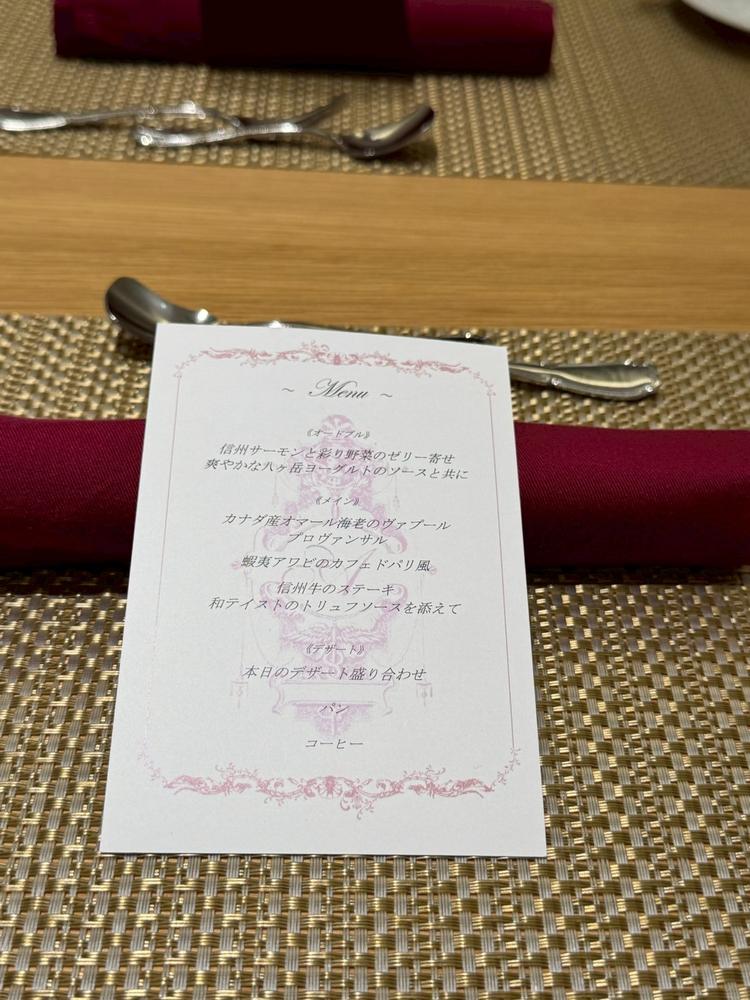 ~ Menu ~
《オードブル》
信州サーモンと彩り野菜のゼリー寄せ
爽やかな八ヶ岳ヨーグルトのソースと共に
《メイン》
カナダ産オマール海老のヴァプール
プロヴァンサル
蝦夷アワビのカフェドパリ風
信州牛のステーキ
和テイストのトリュフソースを添えて
《デザート》
本日のデザート盛り合わせ
パン
コーヒー